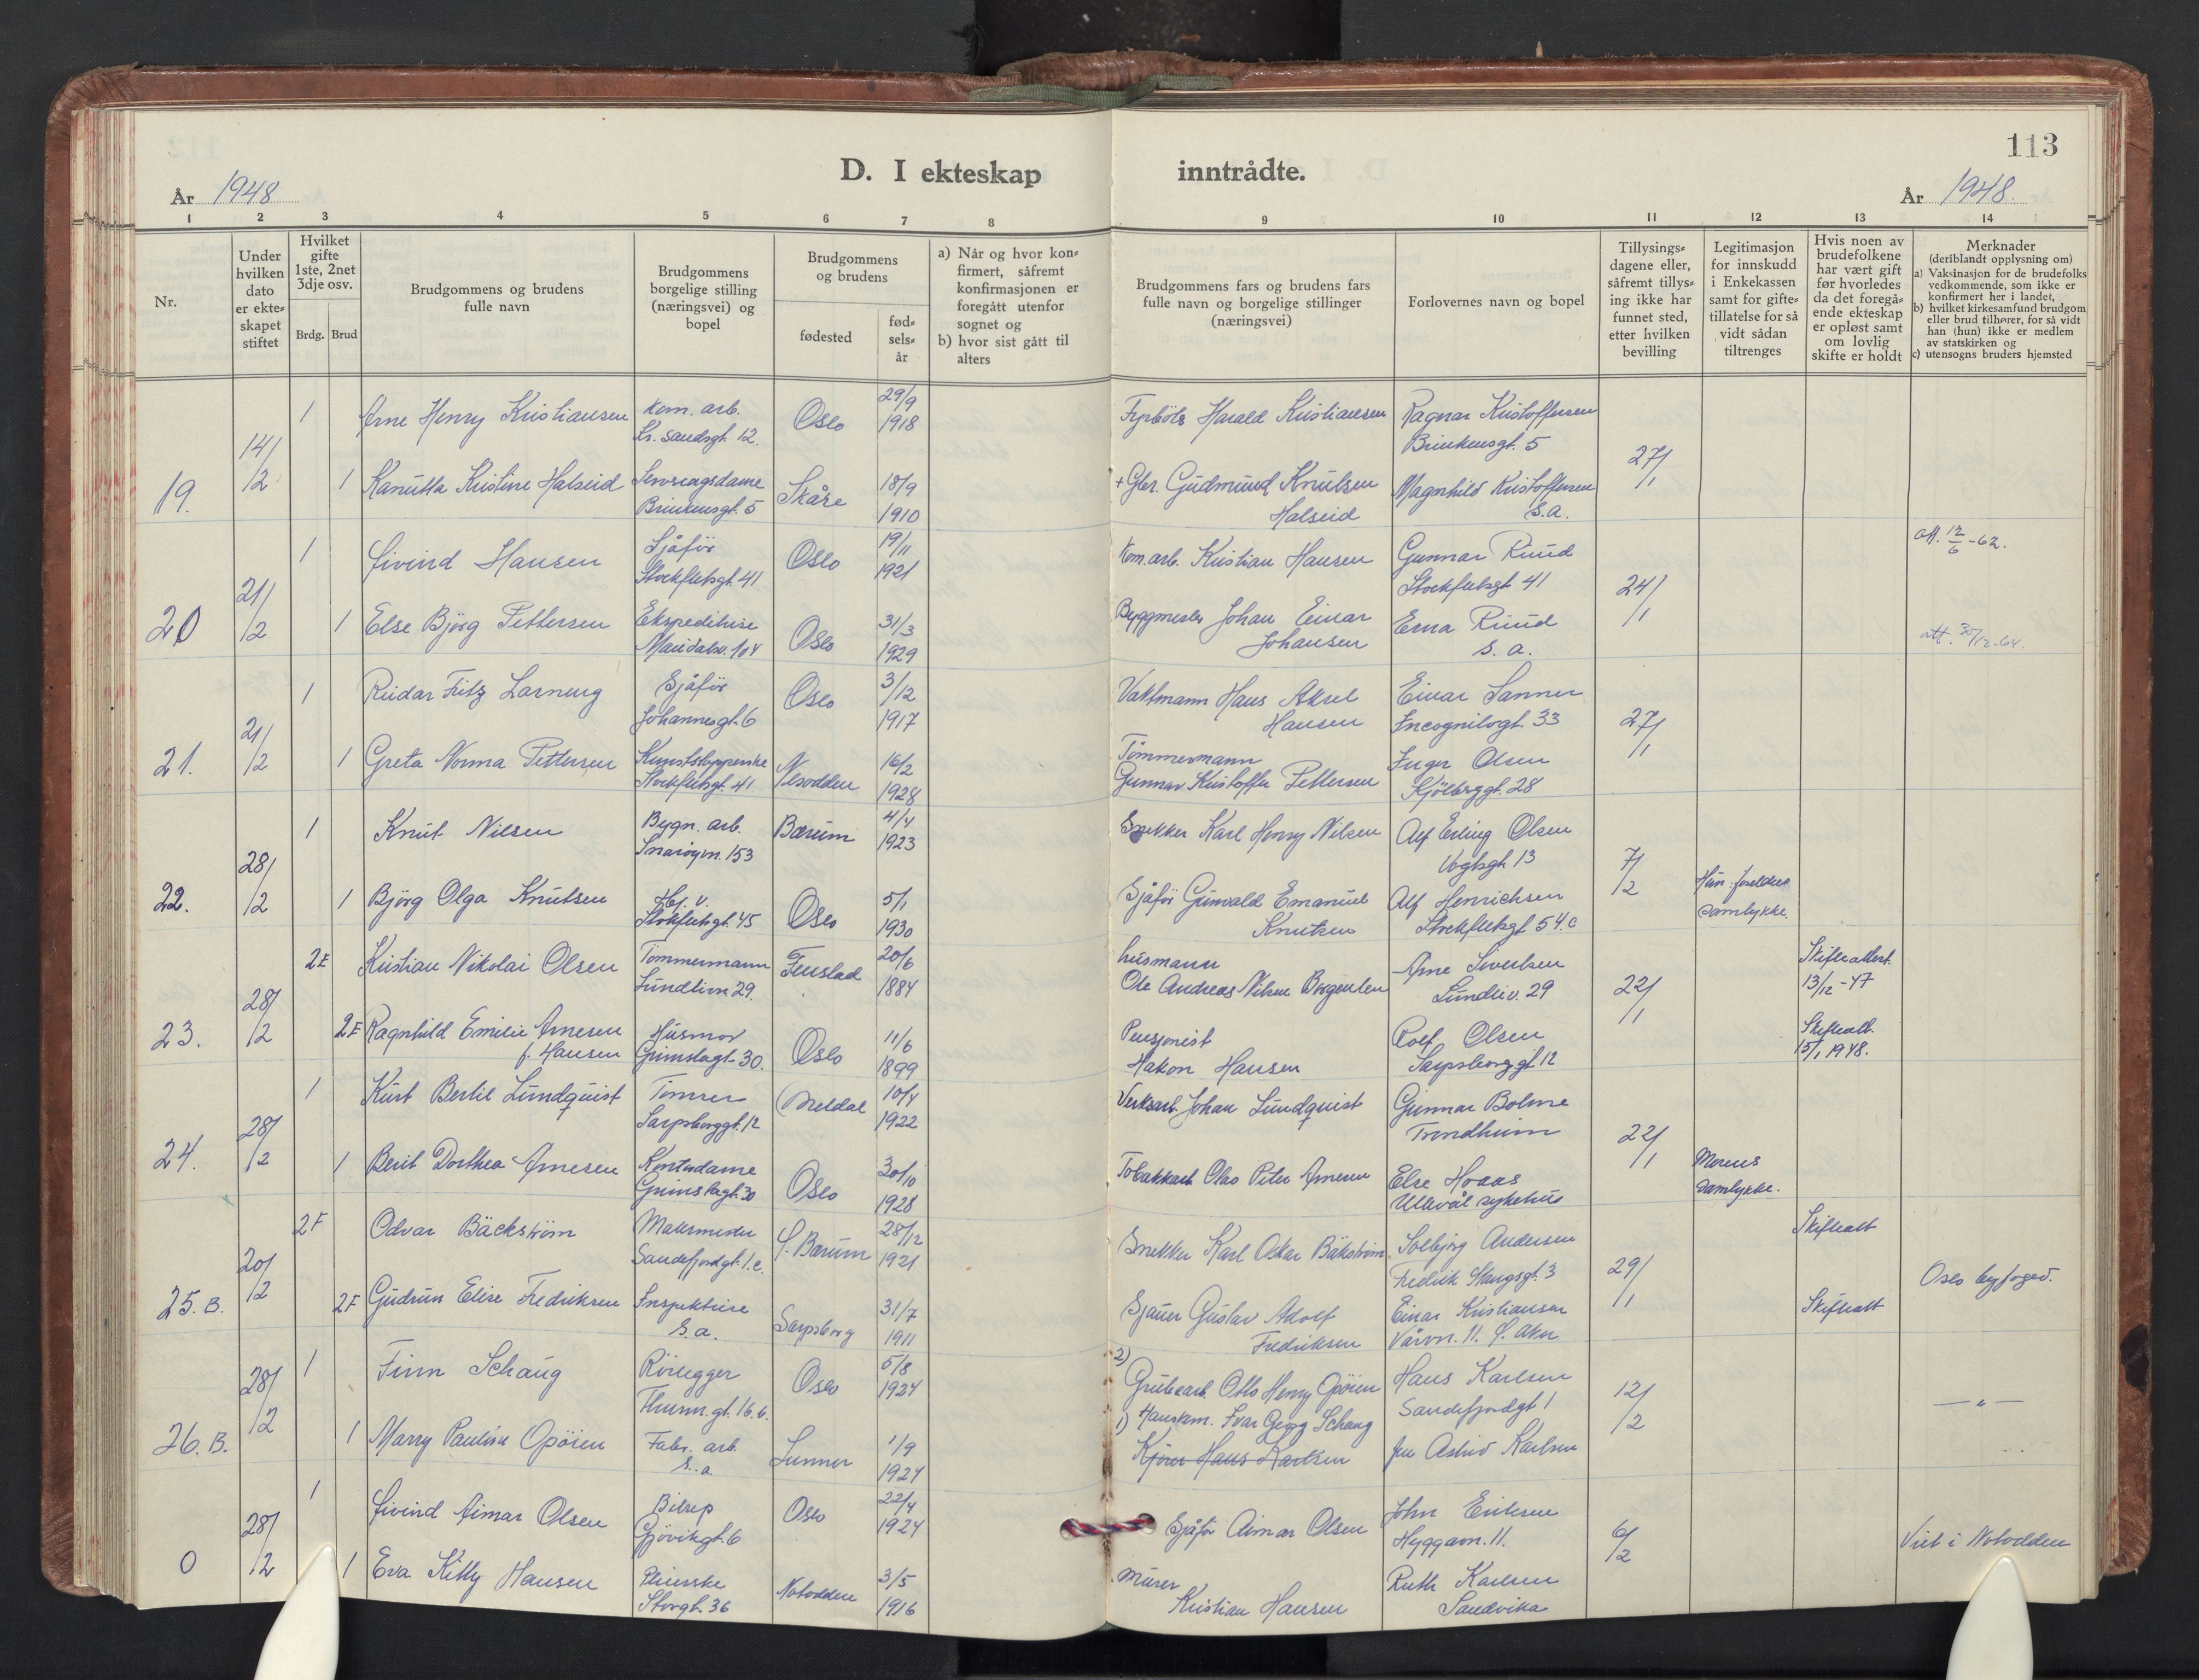 113
D. I ekteskap inntrådte.
År 1948
År 1948.
1 2 3 4 5 6 7 8 9 10 11 12 13 14
Nr.
Under hvilken dato er ekte= skapet stiftet
Hvilket gifte 1ste, 2net 3dje osv.
Brdg. Brud
Brudgommens og brudens fulle navn
Brudgommens borgelige stilling (næringsvei) og bopel
Brudgommens og brudens
fødested
fød= sels= år
a) Når og hvor kon= firmert, såfremt konfirmasjonen er foregått utenfor sognet og
b) hvor sist gått til alters
Brudgommens fars og brudens fars fulle navn og borgelige stillinger (næringsvei)
Forlovernes navn og bopel
Tillysings= dagene eller, såfremt tillys= ing ikke har funnet sted, etter hvilken bevilling
Legitimasjon for innskudd i Enkekassen samt for gifte= tillatelse for så vidt sådan tiltrenges
Hvis noen av brudefolkene har vært gift før hvorledes da det foregå= ende ekteskap er opløst samt om lovlig skifte er holdt
Merknader
(deriblandt opplysning om)
a) Vaksinasjon for de brudefolks vedkommende, som ikke er konfirmert her i landet,
b) hvilket kirkesamfund brudgom eller brud tilhører, for så vidt han (hun) ikke er medlem av statskirken og
c) utensogns bruders hjemsted
19. 14/2
1 Arne Henry Kristiansen Kom. arb. Kr. sandsgt. 12. Oslo 29/9 1918 Fyrbøter Harald Kristiansen Ragnar Kristoffersen Brinkensgt. 5 27/1
1 Kanutta Kristine Halseid Serveringsdame Brinkensgt. 5 Skåre 18/9 1910 + Gbr. Gudmund Knutsen Halseid Magnhild Kristoffersen s.a.
20 21/2
1 Eivind Hansen Sjåfør Stockfletsgt. 41 Oslo 19/11 1921 Kom. arb. Kristian Hansen Gunnar Ruud Stockfletsgt 41 24/1 att. 12/6-62.
1 Else Bjørg Pettersen Ekspeditrise Maridalsv. 104 Oslo 31/3 1929 Byggmester Johan Einar Johansen Erna Ruud s. a. att. 30/12-64.
21. 21/2
1 Reidar Fritz Larneng Sjåfør Johannesgt. 6 Oslo 3/12 1917 Vaktmann Hans Aksel Hansen Einar Sanner Incognitogt. 33 27/1
1 Greta Norma Pettersen Kunststopperske Stockfletsgt. 41 Nesodden 16/2 1928 Tømmermann Gunnar Kristoffer Pettersen Inger Olsen Kjølberggt. 28
22. 28/2
1 Knut Nilsen Bygn. arb. Snarøyvn. 153 Bærum 4/4 1923 Snekker Karl Henry Nilsen Alf Erling Olsen Vogtsgt. 13 7/2
1 Bjørg Olga Knutsen Hj. v. Stokfletsgt. 45 Oslo 5/1 1930 Sjåfør Gunvald Emanuel Knutsen Alf Henrichsen Stockfletsgt 54.c Hun: foreldres samtykke.
23. 28/2
2E Kristian Nikolai Olsen Tømmermann Lundlivn 29. Fenstad 20/6 1884 husmann Ole Andreas Nilsen Borgenlen Arne Sivertsen Lundliv. 29 22/1 Skifteattest. 13/12-47
2E Ragnhild Emilie Arnesen f. Hansen Husmor Grimstagt. 30. Oslo 11/6 1899 Pensjonist Hakon Hansen Rolf Olsen Sarpsborggt 12 Skifteatt. 15/1 1948.
24. 28/2
1 Kurt Bertil Lundquist Tømrer Sarpsborggt. 12 Meldal 10/4 1922 Verksarb. Johan Lundquist Gunnar Bolme Trondheim 22/1
1 Berit Dorthea Arnesen Kontordame Grimstagt. 30 Oslo 30/10 1928 Tobakkarb. Olav Peter Arnesen Else Hoaas Ullevål sykehus Morens samtykke.
25. B. 20/2
2F Odvar Bäckstrøm Malermester Sandefjordgt. 1.c. Ø. Bærum 28/12 1921 Snekker Karl Oskar Bäkstrøm Solbjørg Andersen Fredrik Stangsgt. 3 29/1 Skifteatt Oslo byfoged.
2F Gudrun Elise Fredriksen Inspektrise s.a. Sarpsborg 31/7 1911 Sjauer Gustav Adolf Fredriksen Einar Kristiansen Vårvn. 11. Ø. Aker Skifteatt
26. B. 28/2
1 Finn Schaug Rørlegger Thurm. gt. 16.b. Oslo 5/8 1924 2) Grubearb. Otto Henry Opøien Hans Karlsen Sandefjordgt 1 12/2 — " —
1 Marry Pauline Opøien Fabr. arb. s. a. Lunner 1/9 1924 1) Hansken. Ivar Georg Schaug Kjører Hans Karlsen fru Astrid Karlsen
0 28/2
1 Eivind Aimar Olsen Bilrep Gjøvikgt. 6 Oslo 22/4 1924 Sjåfør Aimar Olsen John Eriksen Hyggavn. 11. 6/2 Viet i Notodden
1 Eva Kitty Hansen Pleierske Storgt. 36 Notodden 3/5 1916 Murer Kristian Hansen Ruth Karlsen Sandvika